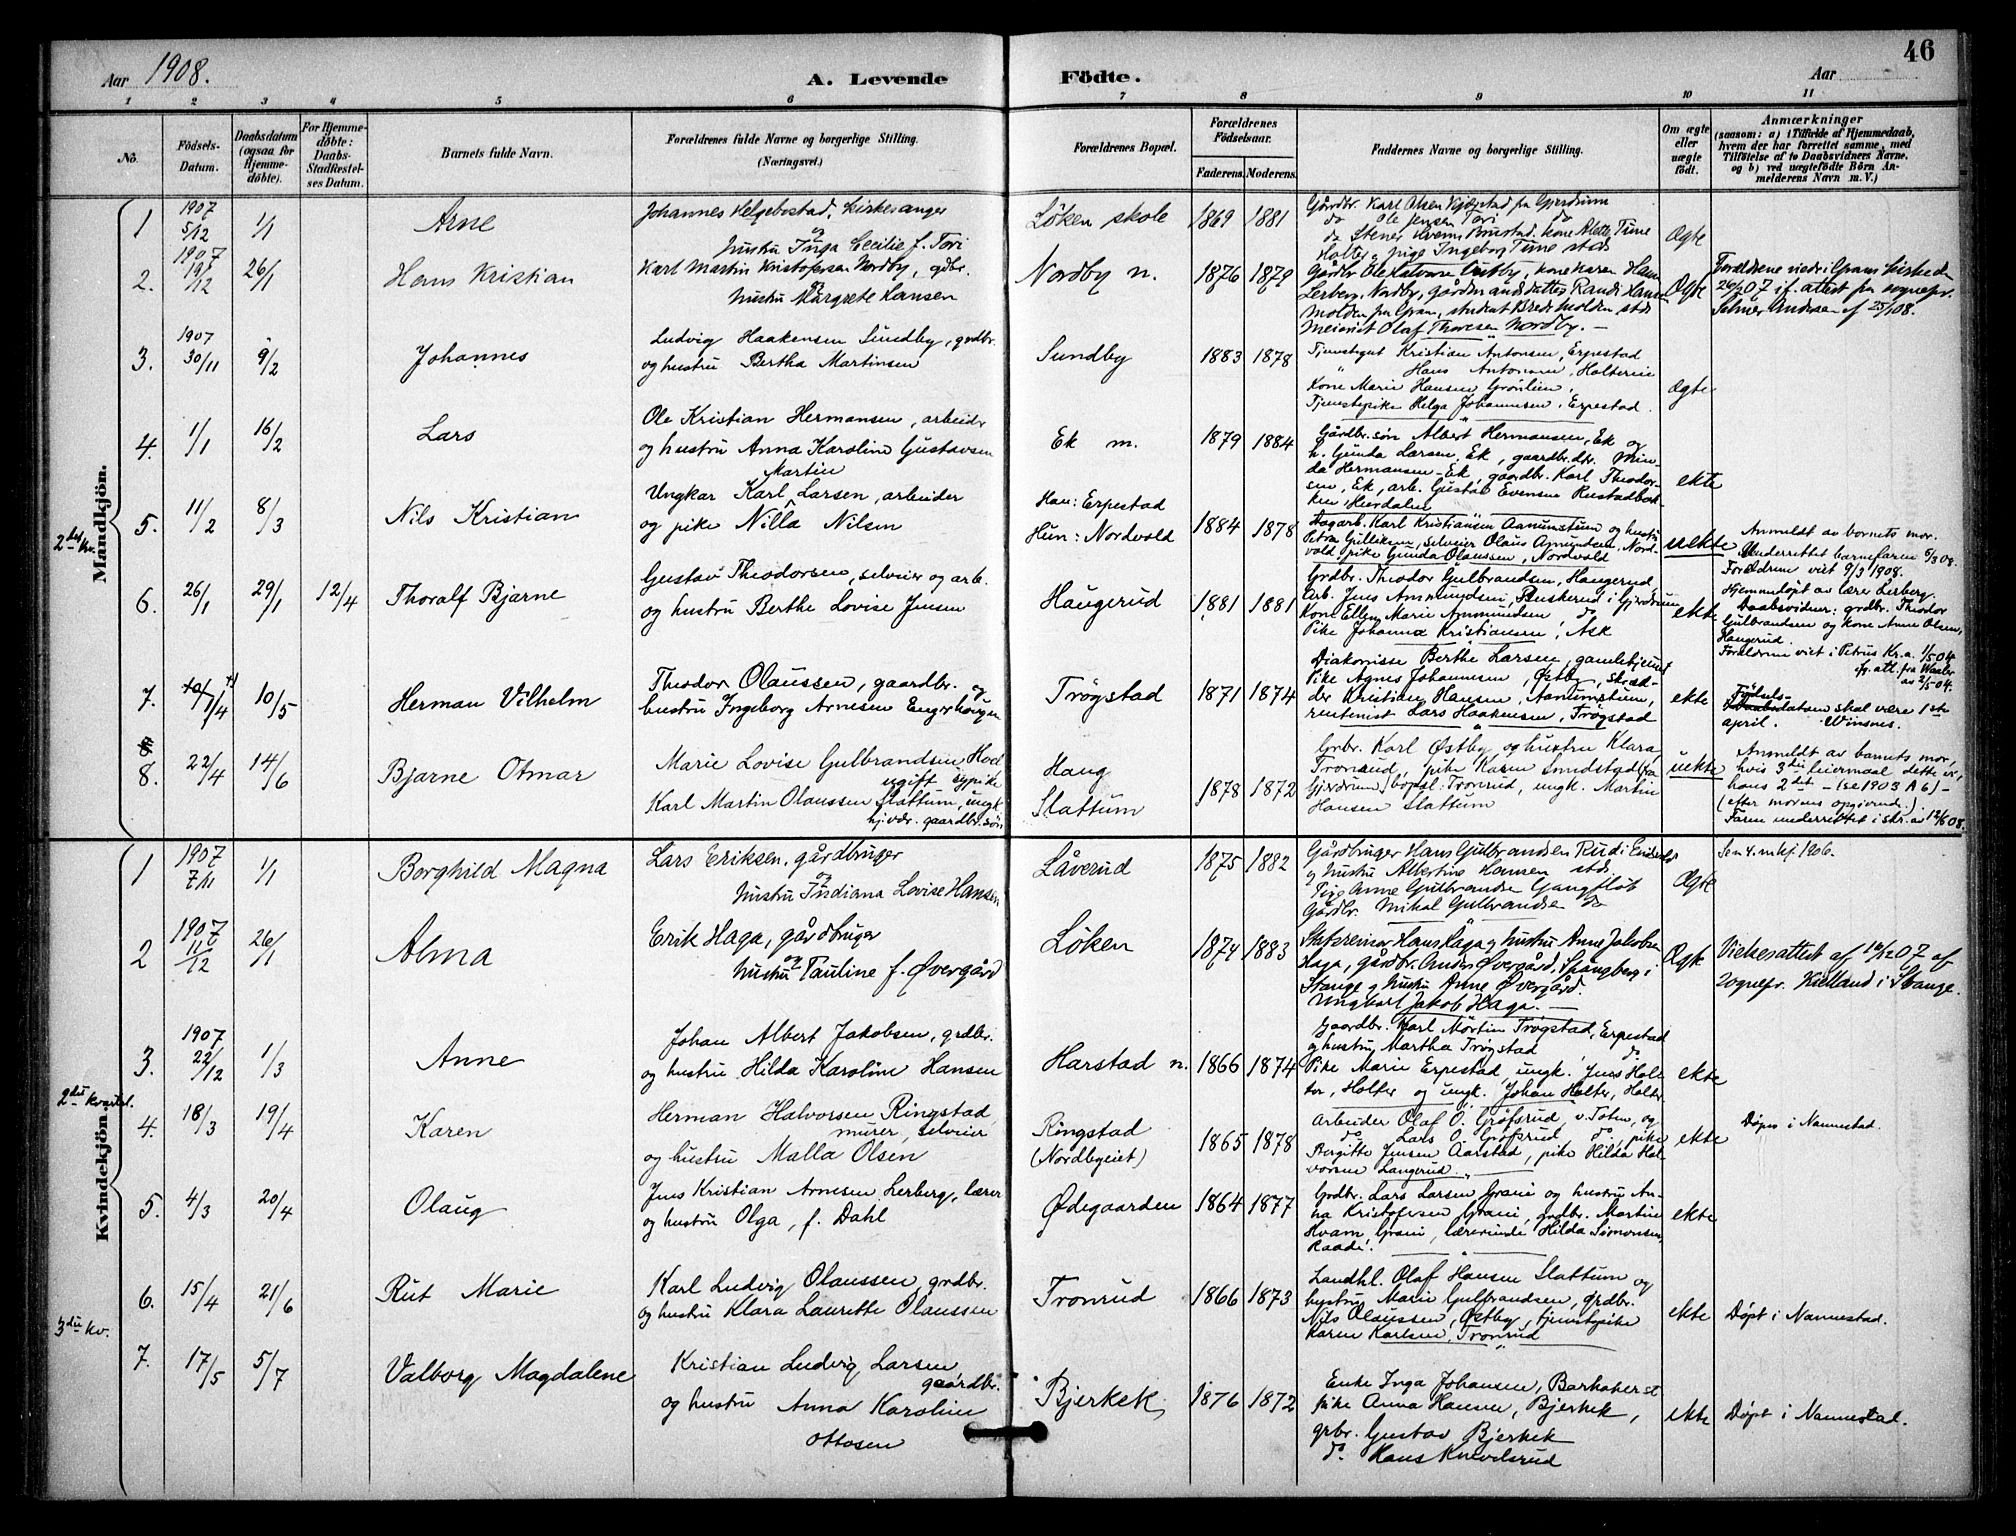 46
Aar 1908.
A. Levende Födte.
Aar
1 2 3 4 5 6 7 8 9 10 11
No.
Födsels-Datum.
Daabsdatum (ogsaa for Hjemme-döbte).
For Hjemme-döbte: Daabs-Stadfæstelses Datum.
Barnets fulde Navn.
Forældrenes fulde Navne og borgerlige Stilling. (Næringsvei.)
Forældrenes Bopæl.
Forældrenes Födselsaar.
Faderens. Moderens.
Faddernes Navne og borgerlige Stilling.
Om ægte eller uægte födt.
Anmærkninger
(saasom: a) i Tilfælde af Hjemmedaab, hvem der har forrettet samme, med Tilföielse af to Daabsvidners Navne, og b) ved uægtefödte Börn Anmelderens Navn m. V.)
Mandkjön.
1 1907 5/12 1/1 Arne
Johannes Helgebostad, kirkesanger
og hustru Inga Cecilie f. Tori
Löken skole 1869 1881
Gårdbr. Karl Olsen Kjæpstad fra Gjerdrum
do Ole Jensen Tori do
do Stener Kvems Brustad, kone Alette Tune
Holter og pige Ingeborg Tune stds
Ægte
2. 1907 19/12 26/1 Hans Kristian
Karl Martin Kristofersen Nordby, gdbr.
og hustru Margrete Hansen
Nordby n. 1876 1879
Gårdbr. Ole Halvorsen Østby, kone Karen Hans
Lerberg, Nordby, gårdmandsdatter Randi Hansen
Molden fra Gran, student Brede Molden stds
Meierist Olaf Thoresen Nordby.
Ægte
Forældrene viede i Grans kirke den
26/ 07 if. attest fra sognepr.
Selmer Andersen af 25/1 08.
3. 1907 30/11 9/2 Johannes
Ludvig Haakensen Sundby, grdbr.
og hustru Bertha Martinsen
Sundby 1883 1878
Tjenestegut Kristian Antonsen, Erpestad
" Hans Antonsen, Holtereie
Kone Marie Hansen Grönlien,
Tjenestepike Helga Johannesen, Erpestad.
Ægte
4. 1/1 16/2 Lars
Ole Kristian Hermansen, arbeider
og hustru Anna Karoline Gustavsen
Ek m. 1879 1884
Gårdbr.søn Albert Hermansen, Ek og
h. Gunda Larsen, Ek, gaardbr.dtr. Min-
da Hermansen Ek, gaardbr. Karl Theodor-
sen, Ek, arb. Gustav Evensen Rustadbak-
ken, Hurdalen
ekte
2det kv.
5. 11/2 8/3 Nils Kristian
Ungkar Karl Martin Larsen, arbeider
og pike Nilla Nilsen
Han: Erpestad
Hun: Nordvold 1884 1878
Dagarb. Karl Kristiansen Aanumstum og hustru
Petra Gulliksen, selveier Olaus Amundsen, Nord-
vold, pike Gunda Olaussen, Nordvold
uekte
Anmeldt av barnets mor.
Underrettet barnefaren 6/3 08.
Forældrene viet 9/3 1908.
6. 26/1 29/1 12/4 Thoralf Bjarne
Gustav Theodorsen, selveier og arb.
og hustru Berthe Lovise Jensen
Haugerud 1881 1881
Grdbr. Theodor Gulbrandsen, Haugerud
Arb. Jens Ammundsen, Buskerud i Gjerdrum
Kone Ellen Marie Ammundsen do
Pike Johanna Kristiansen, Ask
ekte
Hjemmedøpt av lærer Lerberg.
Daabsvidner: grdbr. Theodor
Gulbrandsen og kone Anne Olsen,
Haugerud.
Forældrene viet i Petrus Kr.a. 1/5 04
if. att. fra Waaler
av 2/5 04.
7. 1/4 10/5 Herman Vilhelm
Theodor Olaussen, gaardbr. og
hustru Ingeborg Arnesen Engerhaugen
Trøgstad 1871 1874
Diakonisse Berthe Larsen, gamlehjemmet
Pike Agnes Johannesen, Østby, skræd-
der Kristian Hansen, Aanumstum,
rentenist Lars Haakensen, Trøgstad
ekte
Fødselsdatoen skal være 1ste
april. Winsnes.
8. 22/4 14/6 Bjarne Otmar
Marie Lovise Gulbrandsen Hoel
ugift sypike
Karl Martin Olaussen Slattum, ungk.
hjvær. gaardbr.søn
Haug
Slattum 1878 1872
Grbr. Karl Østby og hustru Klara
Tronrud, pike Karen Smedstad (fra
Gjerdrum) bopæl: Tronrud, ungk. Martin
Hansen Slattum
uekte
Anmeldt av barnets mor,
hvis 3die leiermaal dette er,
hans 2det – (se 1903 A 6) –
(efter morens opgivende).
Faren underrettet i skr. av 12/6 08.
Kvindekjön.
1 1907 7/11 1/1 Borghild Magna
Lars Eriksen, gårdbruger
og hustru Indiana Lovise Hansen
Låverud 1875 1882
Gårdbruger Hans Gulbrandsen Rud i Enebak
og hustru Albertine Hansen stds,
Pige Anne Gulbrandsen Gangfløt
Gårdbr. Mikal Gulbrandsen do
Ægte
Se n 4. mkj. 1906.
2 1907 11/12 26/1 Alma
Erik Haga, gårdbruger
og hustru Pauline f. Øvergård
Løken 1874 1883
Hans Haga og hustru Anne Jakobsen
Haga, gårdbr. Anders Øvergård, Spangberg i
Stange og hustru Anne Øvergård.
Ungkarl Jakob Haga.
Ægte
Vielsesattest af 10/12 07 af
sognepr. Kielland i Stange.
3. 1907 22/12 1/3 Anne
Johan Albert Jakobsen, grdbr.
og hustru Hilda Karoline Hansen
Harstad n. 1866 1874
Gaardbr. Karl Martin Trøgstad, Erpestad
og hustru Martha Trøgstad do
Pike Marie Erpestad, ungk. Jens Hol-
ter, Holter og ungk. Johan Holter, Holter
ekte
2det kvartal.
4. 18/3 19/4 Karen
Herman Halvorsen Ringstad,
murer, selveier
og hustru Malla Olsen
Ringstad
(Nordbyeiet) 1865 1878
Arbeider Olaf O. Gröfsrud, v. Toten, og
do Lars O. Gröfsrud do, pike
Birgitte Jensen Aarstad, pike Hilda Hal-
vorsen Langerud.
ekte
Døpt i Nannestad.
5. 4/3 20/4 Olaug
Jens Kristian Arnesen Lerberg, lærer
og hustru Olga, f. Dahl
Ødegaarden 1864 1877
Grdbr. Lars Larsen Grani og hustru An-
na Kristofersen Grani, grdbr. Martin
Hvam, Grani, lærerinde Hilda Simonsen,
Raade.
ekte
6. 15/4 21/6 Rut Marie
Karl Ludvig Olaussen, grdbr.
og hustru Klara Laurette Olaussen
Tronrud 1866 1873
Landhl. Olaf Hansen Slattum og
hustru Marie Gulbrandsen, grdbr.
Nils Olaussen, Østby, tjenestepike
Karen Karlsen, Tronrud
ekte
Døpt i Nannestad.
3die kv.
7. 17/5 5/7 Valborg Magdalene
Kristian Ludvig Larsen
gaardbr.
og hustru Anna Karoline
Ottosen
Bjerkek 1876 1872
Enke Inga Johansen, Barhaberst
pike Anna Hansen, Bjerkek,
grbr. Gustav Bjerkek
do. Hans Knevelsrud
ekte
Døpt i Nannestad.